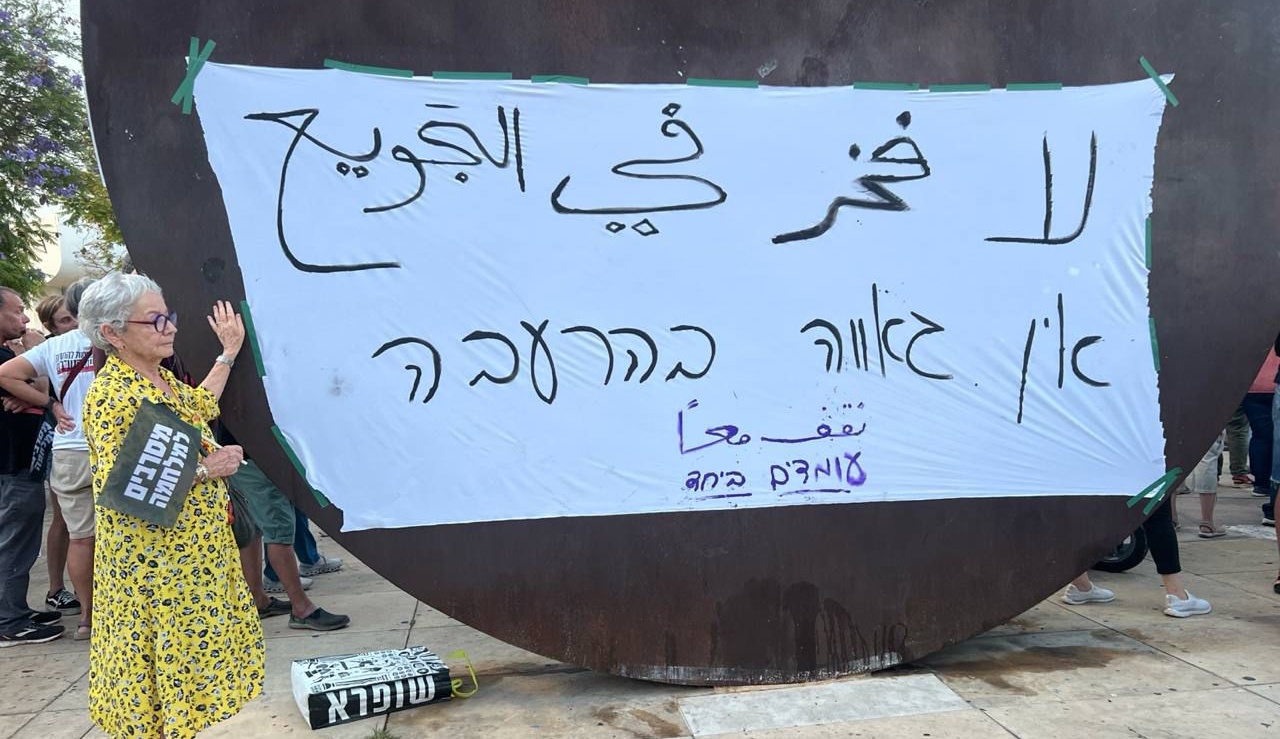 لا فخر في التجويع
אין גאווה בהרעבה
نقف معًا
עומדים ביחד
מסרבים
למלחמה
שופרא